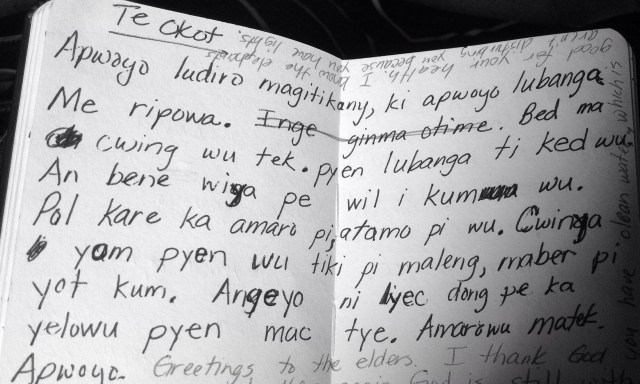 Te Okot.
Apwoyo ludiro magitikany, ki apwoyo lubanga
Me ripowa. Inge ginma otime. Bed ma
cwing wu tek. pyen lubanga ti ked wu.
An bene wiya pe wil i kum wu.
Pol kare ka amaro pi, atamo pi wu. Cwinya
yom pyen wu tiki pi maleng, maber pi
yot kum. Angeyo ni lyec dong pe ka
yelowu pyen mac tye. Amarowu matek.
Apwoyo. Greetings to the elders. I thank God
God is still with
you have clean water which is
good for your health. I know the elephants
aren't disturbing you because you have lights.